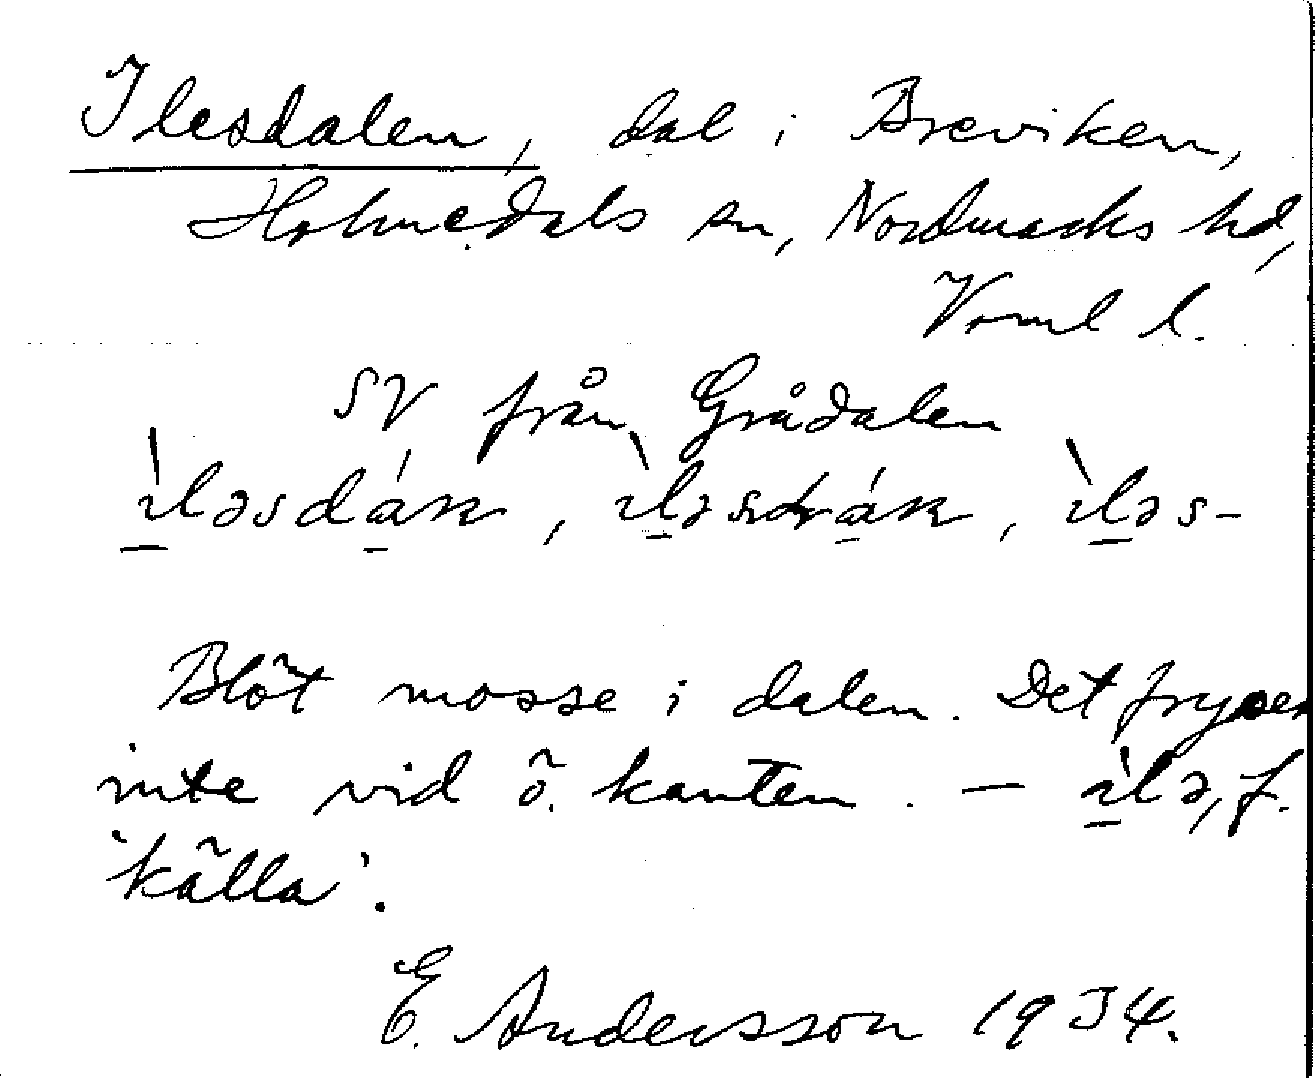 Ilesdalen, dal i Breviken,
Holmedals sn, Nordmarks hd,
Vrml l.
SV från Grådalen
ìləsdáɴ, ìləsdáɴ, ìləs-
Blöt mosse i dalen. Det fryser
inte vid ö. kanten. – ìlə, f.
'källa'.
E. Andersson 1934.